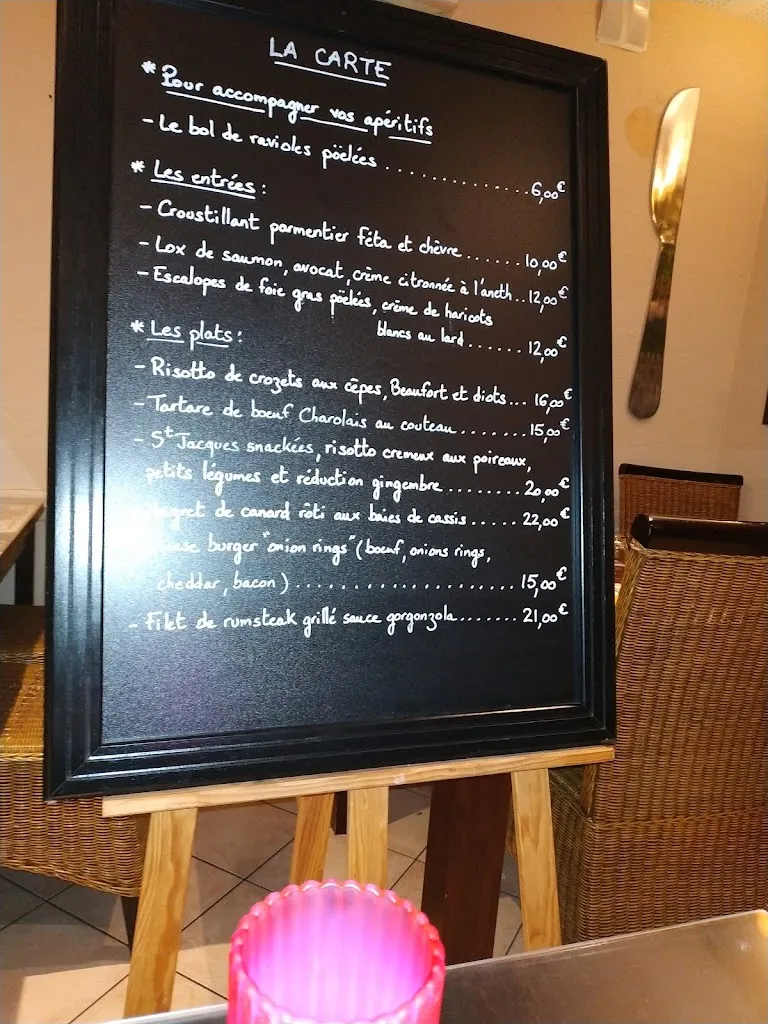 LA CARTE
* Pour accompagner vos apéritifs
- Le bol de ravioles pöelées ............... 6,00€
* Les entrées :
- Croustillant parmentier féta et chèvre ...... 10,00€
- Lox de saumon, avocat, crème citronnée à l'aneth .. 12,00€
- Escalopes de foie gras pöelées, crème de haricots
blancs au lard ...... 12,00€
* Les plats :
- Risotto de crozets aux cèpes, Beaufort et diots ... 16,00€
- Tartare de boeuf Charolais au couteau ....... 15,00€
- St Jacques snackées, risotto cremeux aux poireaux,
petits légumes et réduction gingembre ........ 20,00€
de canard rôti aux baies de cassis ..... 22,00€
burger "onion rings" (boeuf, onions rings,
cheddar, bacon) .................... 15,00€
- Filet de rumsteak grillé sauce gorgonzola ....... 21,00€